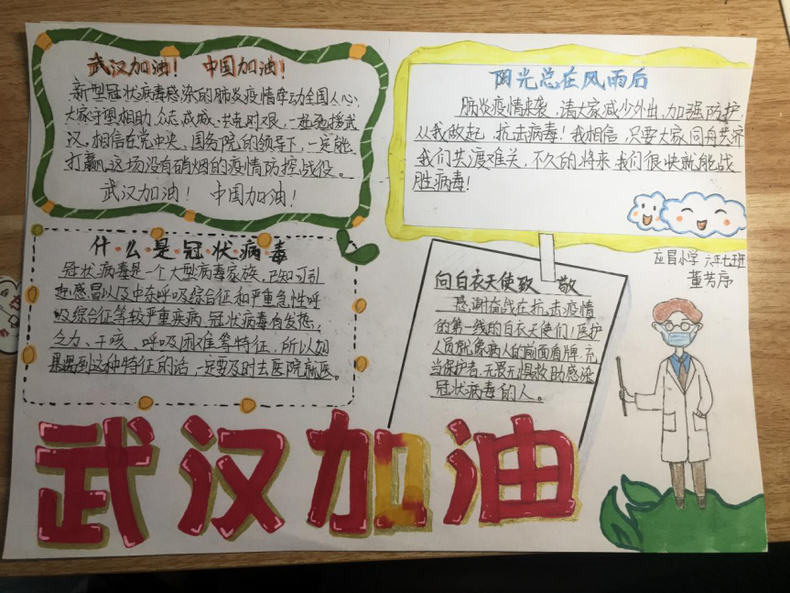 武汉加油！ 中国加油！
新型冠状病毒感染的肺炎疫情牵动全国人心,
大家守望相助、众志成城、共克时艰,一起驰援武
汉,相信在党中央、国务院的领导下,一定能
打赢这场没有硝烟的疫情防控战役。
武汉加油！ 中国加油！
阳光总在风雨后
肺炎疫情来袭,请大家减少外出,加强防护,
从我做起,抗击病毒！我相信,只要大家同舟共济
我们共渡难关,不久的将来我们很快就能战
胜病毒！
什么是冠状病毒
冠状病毒是一个大型病毒家族,已知可引
起感冒以及中东呼吸综合征和严重急性呼
吸综合征等较严重疾病,冠状病毒有发热,
乏力、干咳、呼吸困难等特征,所以如
果遇到这种特征的话,一定要及时去医院就医。
向白衣天使致 敬
感谢奋战在抗击疫情
的第一线的白衣天使们！医护
人员就象病人的前面盾牌,充
当保护者,无畏无惧救助感染
冠状病毒的人。
应昌小学 六年七班
董芳序
武汉加油